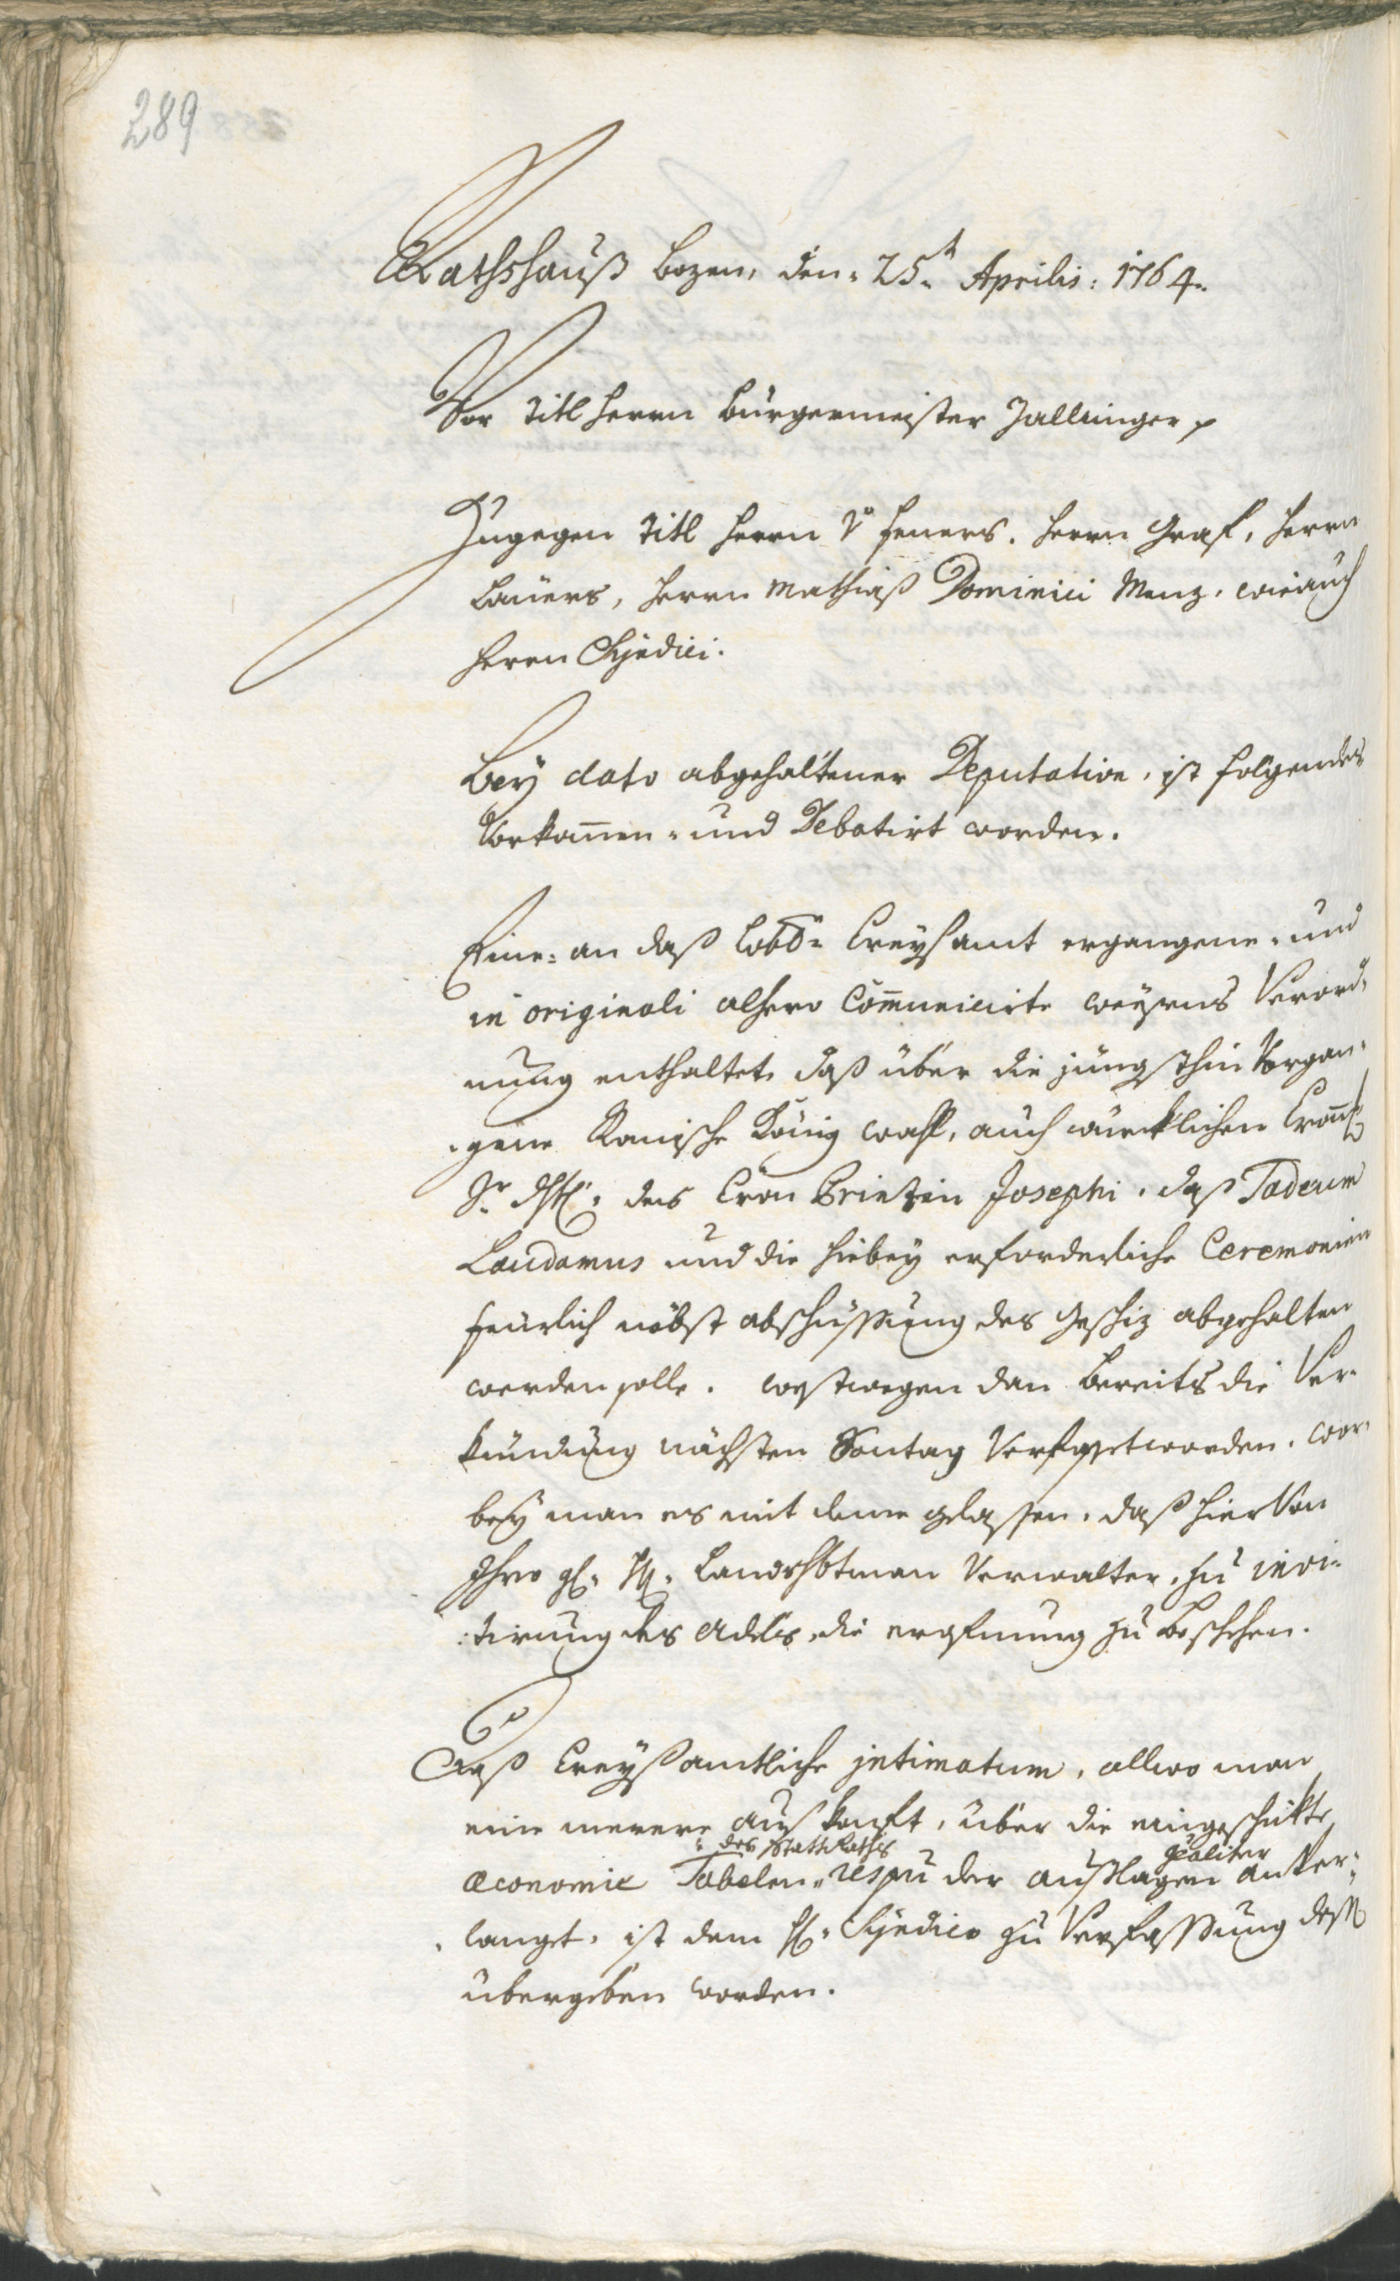 289
Rathshauß Bozen, den 25.t Aprilis: 1764.
Vor titl herrn burgermeister Zallinger p
Zugegen titl herrn v feners. herrn Graf, herrn
Lauers, herrn Mathiaß Dominici Menz. wie auch
herrn Syndici.
Bey dato abgehaltener Deputation, ist folgendes
Vorkom̅en- und Debatirt worden.
Eine: an daß lobl: Creysamt ergangene- und
in originali alhero Com̅unicirte weysens Verord-
nung enthaltet, daß über die jüngsthin Vorgan-
-gene Römische König wahl, auch würklichen
Sr des Cron Printzen Josephi, daß Tadeum
Laudamus und die hiebey erforderliche Ceremonien
feurlich nebst abschüssung des Geschiz abgehalten
werden solle. wesstwegen dan bereits die Ver-
kündung nächsten Sontag Verfasset worden. wor-
bey man es mit deme gelassen, daß hier Von
Ihro gh. H. Landtshbtman Verwalter, zu invi-
:tirung des Adels, die erofnung zu beschehen.
Daß Creysamtliche jntimatum, allwo man
eine merere auskonft, über die eingeschikte
: des stattRaths qualiter
œconomie Tabelen, der ausslagen anVer-
-langet, ist dem H. Syndico zu Verfassung
übergeben worden.